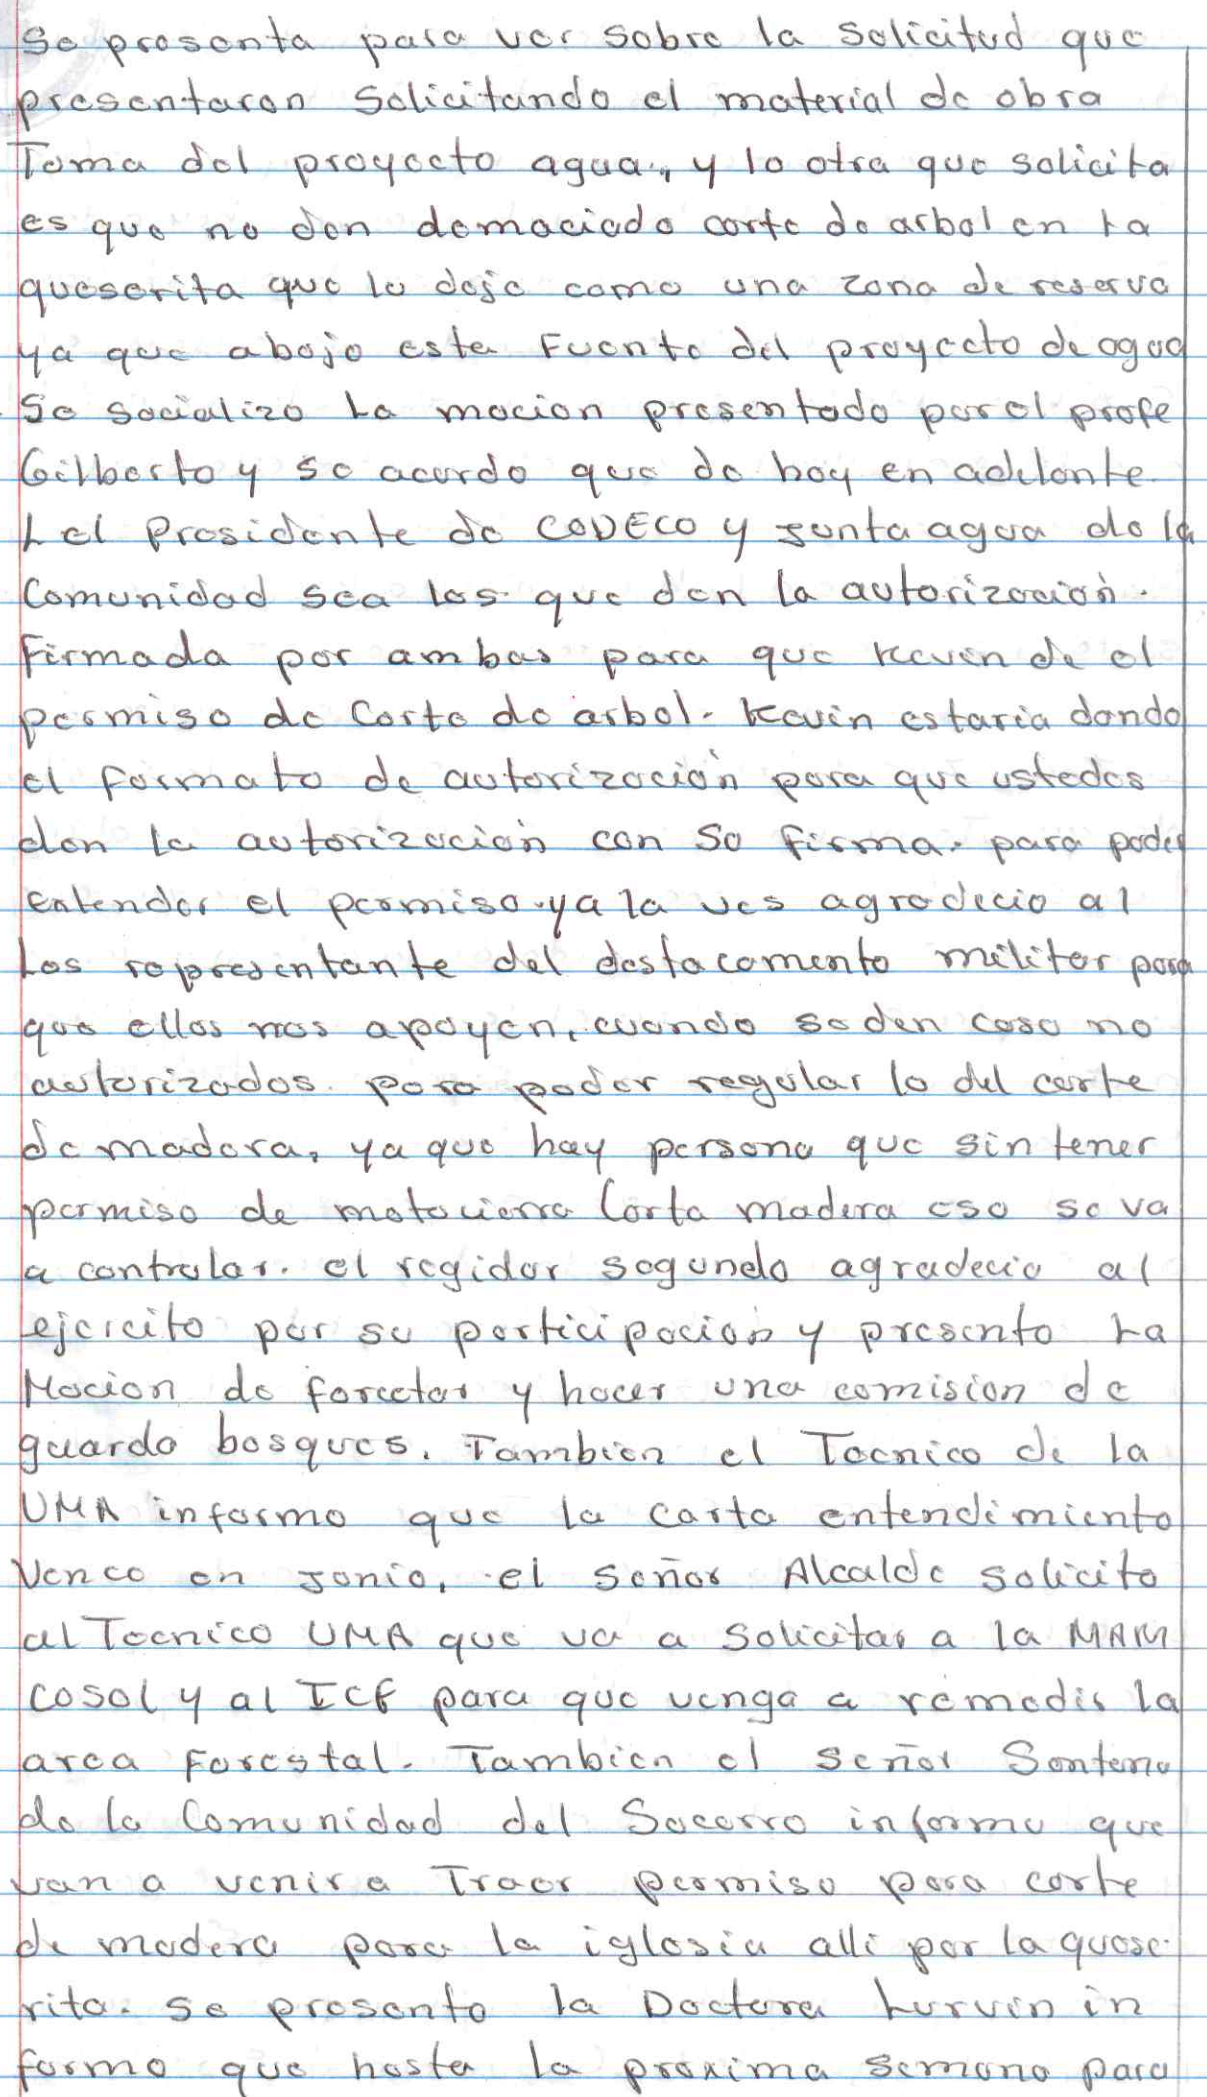 Se presenta para ver sobre la solicitud que
presentaron solicitando el material de obra
Toma del proyecto agua, y lo otra que solicita
es que no den demaciado corte de arbol en La
queserita que lo deje como una zona de reserva
ya que abajo esta Fuente del proyecto de agua
Se socializo La mocion presentado por el profe
Gilberto y se acordo que de hoy en adelante.
L el Presidente de CODECO y Junta agua de la
Comunidad sea los que den la autorización.
Firmada por ambas para que Kevin de el
permiso de Corte de arbol. Kevin estaria dando
el formato de autorización para que ustedes
den la autorización con So firma. para poder
entender el permiso. ya la ves agradecio al
Los representante del destacamento militar para
que ellos nos apoyen, cuando se den caso no
autorizados. para poder regular lo del corte
de madera, ya que hay persona que sin tener
permiso de motocierra Corta madera eso se va
a controlar. el regidor segundo agradecio al
ejercito por su participacion y presento La
Mocion de forectar y hacer una comision de
guarda bosques. Tambien el Tecnico de la
UMA informo que la carta entendimiento
Vence en Junio, el señor Alcalde solicito
al Tecnico UMA que va a solicitar a la MAM
COSOL y al ICF para que venga a remedir la
area Forestal. Tambien el señor Senteno
de la Comunidad del Socorro informo que
van a venir a Traer permiso para corte
de madera para la iglesia alli por la quese-
rita. se presento la Doctora Lurvin in
formo que hasta la proxima semana para